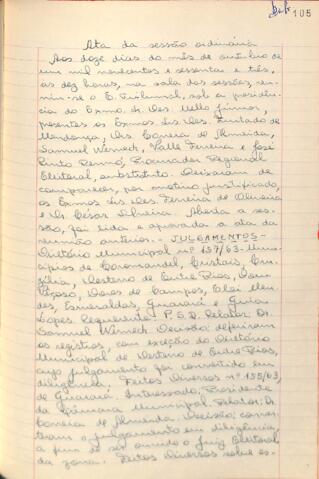 105
Ata da sessão ordinária
Aos doze dias do mês de outubro de
um mil novecentos e sessenta e três,
às dez horas, na sala das sessões, reu-
niu-se o E. Tribunal, sob a presidên-
cia do Exmo. Sr. Des. Mello Júnior,
presentes os Exmos. Srs. Des. Furtado de
Mendonça, Drs. Correia de Almeida,
Samuel Werneck, Valle Ferreira e José
Pinto Rennó, Procurador Regional
Eleitoral, substituto. Deixaram de
comparecer, por motivo justificado,
os Exmos. Srs. Des. Ferreira de Oliveira
e Dr. César Silveira. Aberta a ses-
são, foi lida e aprovada a ata da
reunião anterior. - JULGAMENTOS -
Diretório Municipal nº 157/63. Muni-
cípios de Coromandel, Cristais, Cru-
zília, Desterro de Entre Rios, Dom
Viçoso, Dores de Campos, Elói Men-
des, Esmeraldas, Guaraní e Guia
Lopes. Requerente: P.S.D. Relator: Dr.
Samuel Werneck. Decisão: deferiram
os registros, com exceção do Diretório
Municipal de Desterro de Entre Rios,
cujo julgamento foi convertido em
diligência. Feitos Diversos nº 155/63,
de Guarará. Interessado: Presidente
da Câmara Municipal. Relator: Dr.
Correia de Almeida. Decisão: conver-
teram o julgamento em diligência,
a fim de ser ouvido o Juiz Eleitoral
da zona. Feitos Diversos sobre es-